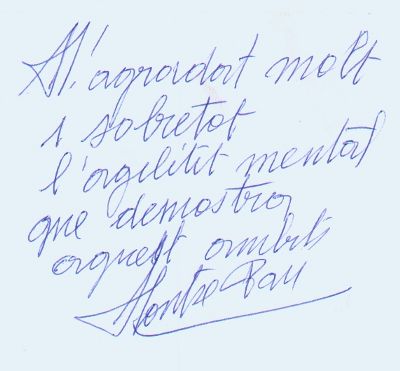 M'agradat molt
i sobretot
l'agilitit mental
que demostra
aquest ambit
Montse Pau